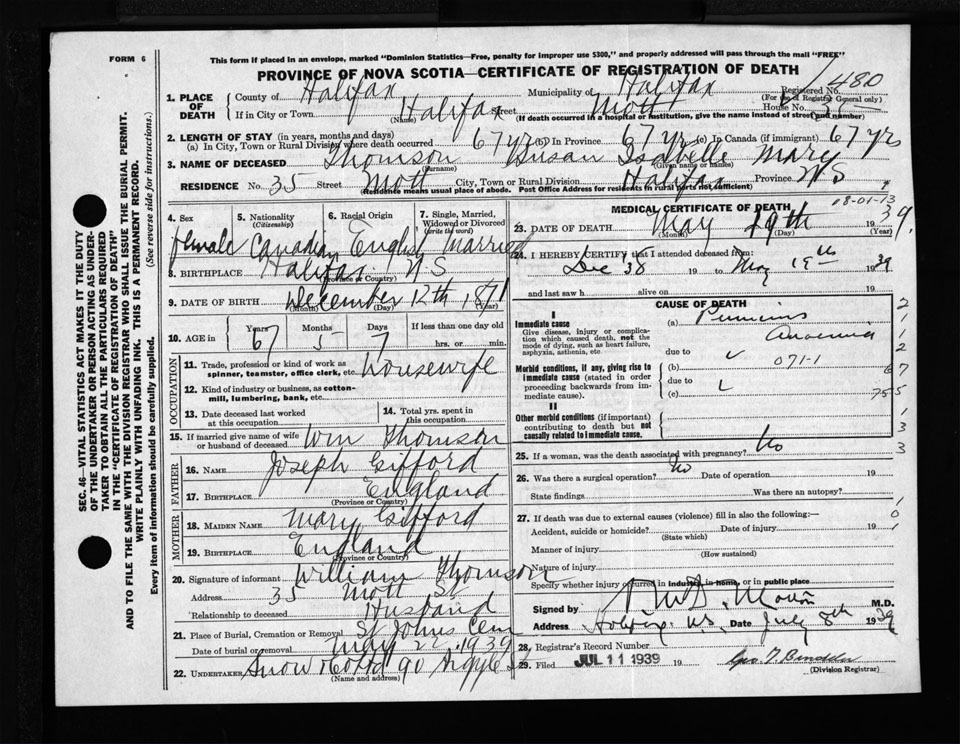 FORM 6
This form if placed in an envelope, marked "Dominion Statistics—Free, penalty for improper use $300," and properly addressed will pass through the mail "FREE"
PROVINCE OF NOVA SCOTIA—CERTIFICATE OF REGISTRATION OF DEATH
1. PLACE OF DEATH County of Halifax Municipality of Halifax Registered No. 480
(For use of Registrar General only)
If in City or Town Halifax (Name) Street Mott House No. 35
(If death occurred in a hospital or institution, give the name instead of street and number)
2. LENGTH OF STAY (in years, months and days)
(a) In City, Town or Rural Division where death occurred 67 yr (b) In Province 67 yr (c) In Canada (if immigrant) 67 yrs
3. NAME OF DECEASED Thomson Susan Isabelle Mary
(Surname) (Given name or names)
RESIDENCE No. 35 Street Mott City, Town or Rural Division Halifax Province NS
(Residence means usual place of abode. Post Office Address for residents in rural parts not sufficient)
4. Sex female
5. Nationality (Citizenship) Canadian
6. Racial Origin English
7. Single, Married, Widowed or Divorced (Write the word) Married
8. BIRTHPLACE Halifax NS
(Province or Country)
9. DATE OF BIRTH December 12th 1871
(Month) (Day) (Year)
10. AGE in Years 67 Months 5 Days 7 If less than one day old hrs. or min.
OCCUPATION
11. Trade, profession or kind of work as spinner, teamster, office clerk, etc. Housewife
12. Kind of industry or business, as cotton-mill, lumbering, bank, etc.
13. Date deceased last worked at this occupation
14. Total yrs. spent in this occupation
15. If married give name of wife or husband of deceased Wm Thomson
FATHER
16. NAME Joseph Gifford
17. BIRTHPLACE England
(Province or Country)
MOTHER
18. MAIDEN NAME Mary Gifford
19. BIRTHPLACE England
(Province or Country)
20. Signature of informant William Thomson
Address 35 Mott St
Relationship to deceased Husband
21. Place of Burial, Cremation or Removal St Johns Cem
Date of burial or removal May 22, 1939
22. UNDERTAKER Snow & Co Ltd 90 Argyle St
(Name and address)
MEDICAL CERTIFICATE OF DEATH
08-01-13
23. DATE OF DEATH May 19th 1939
(Month) (Day) (Year)
24. I HEREBY CERTIFY that I attended deceased from:
Dec 38 19 to May 19th 1939
and last saw h alive on 19
CAUSE OF DEATH
I
Immediate cause
Give disease, injury or complication which caused death, not the mode of dying, such as heart failure, asphyxia, asthenia, etc.
(a) Pernicious Anaemia
due to
071-1
Morbid conditions, if any, giving rise to immediate cause (stated in order proceeding backwards from immediate cause).
(b)
due to
(c)
II
Other morbid conditions (if important) contributing to death but not causally related to immediate cause.
25. If a woman, was the death associated with pregnancy? No
26. Was there a surgical operation? No Date of operation 19
State findings Was there an autopsy?
27. If death was due to external causes (violence) fill in also the following:—
Accident, suicide or homicide? Date of injury 19
(State which)
Manner of injury
(How sustained)
Nature of injury
Specify whether injury occurred in industry, in home, or in public place
Signed by M.D.
Address Halifax N.S. Date July 8th 1939
28. Registrar's Record Number
29. Filed JUL 11 1939 19
(Division Registrar)
SEC. 46—VITAL STATISTICS ACT MAKES IT THE DUTY
OF THE UNDERTAKER OR PERSON ACTING AS UNDER-
TAKER TO OBTAIN ALL THE PARTICULARS REQUIRED
IN THE "CERTIFICATE OF REGISTRATION OF DEATH"
AND TO FILE THE SAME WITH THE DIVISION REGISTRAR WHO SHALL ISSUE THE BURIAL PERMIT.
WRITE PLAINLY WITH UNFADING INK. THIS IS A PERMANENT RECORD.
Every item of information should be carefully supplied. (See reverse side for instructions.)